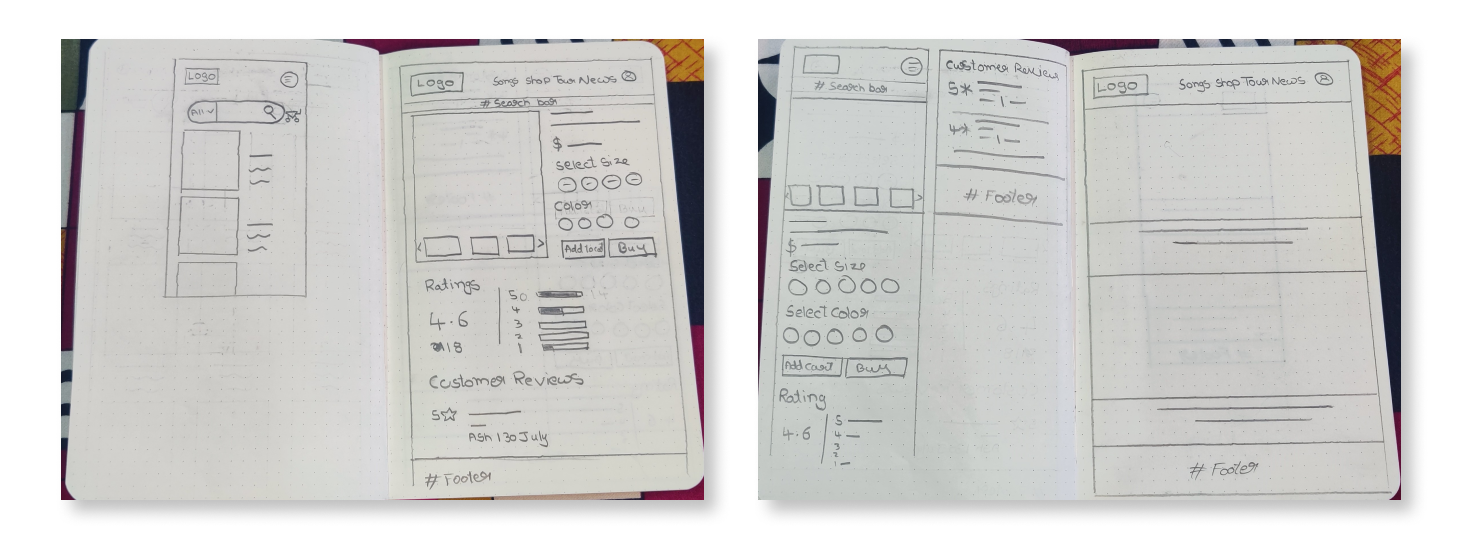 Logo
All
Logo
Songs Shop Tour News
# Search bar
$
Select Size
Color
Buy
Ratings
4.6
18
5
4
3
2
1
Customer Reviews
5
Ash | 30 July
# Footer
# Search bar
$
Select Size
Select Color
Add cart
Buy
Rating
4.6
5
4
3
2
1
Customer Review
5*
4*
# Footer
Logo
Songs Shop Tour News
# Footer